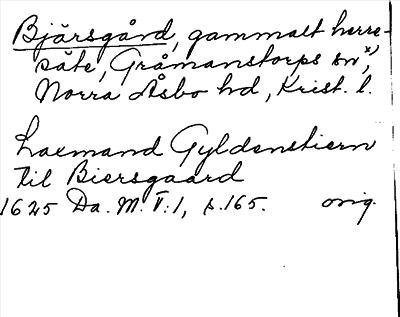 Bjärsgård, gammalt herre-
säte, Gråmanstorps sn x),
Norra Åsbo hd, Krist. l.
Laxmand Gyldenstiern
til Biersgaard
1625 Da. M. V:1, s. 165. orig.